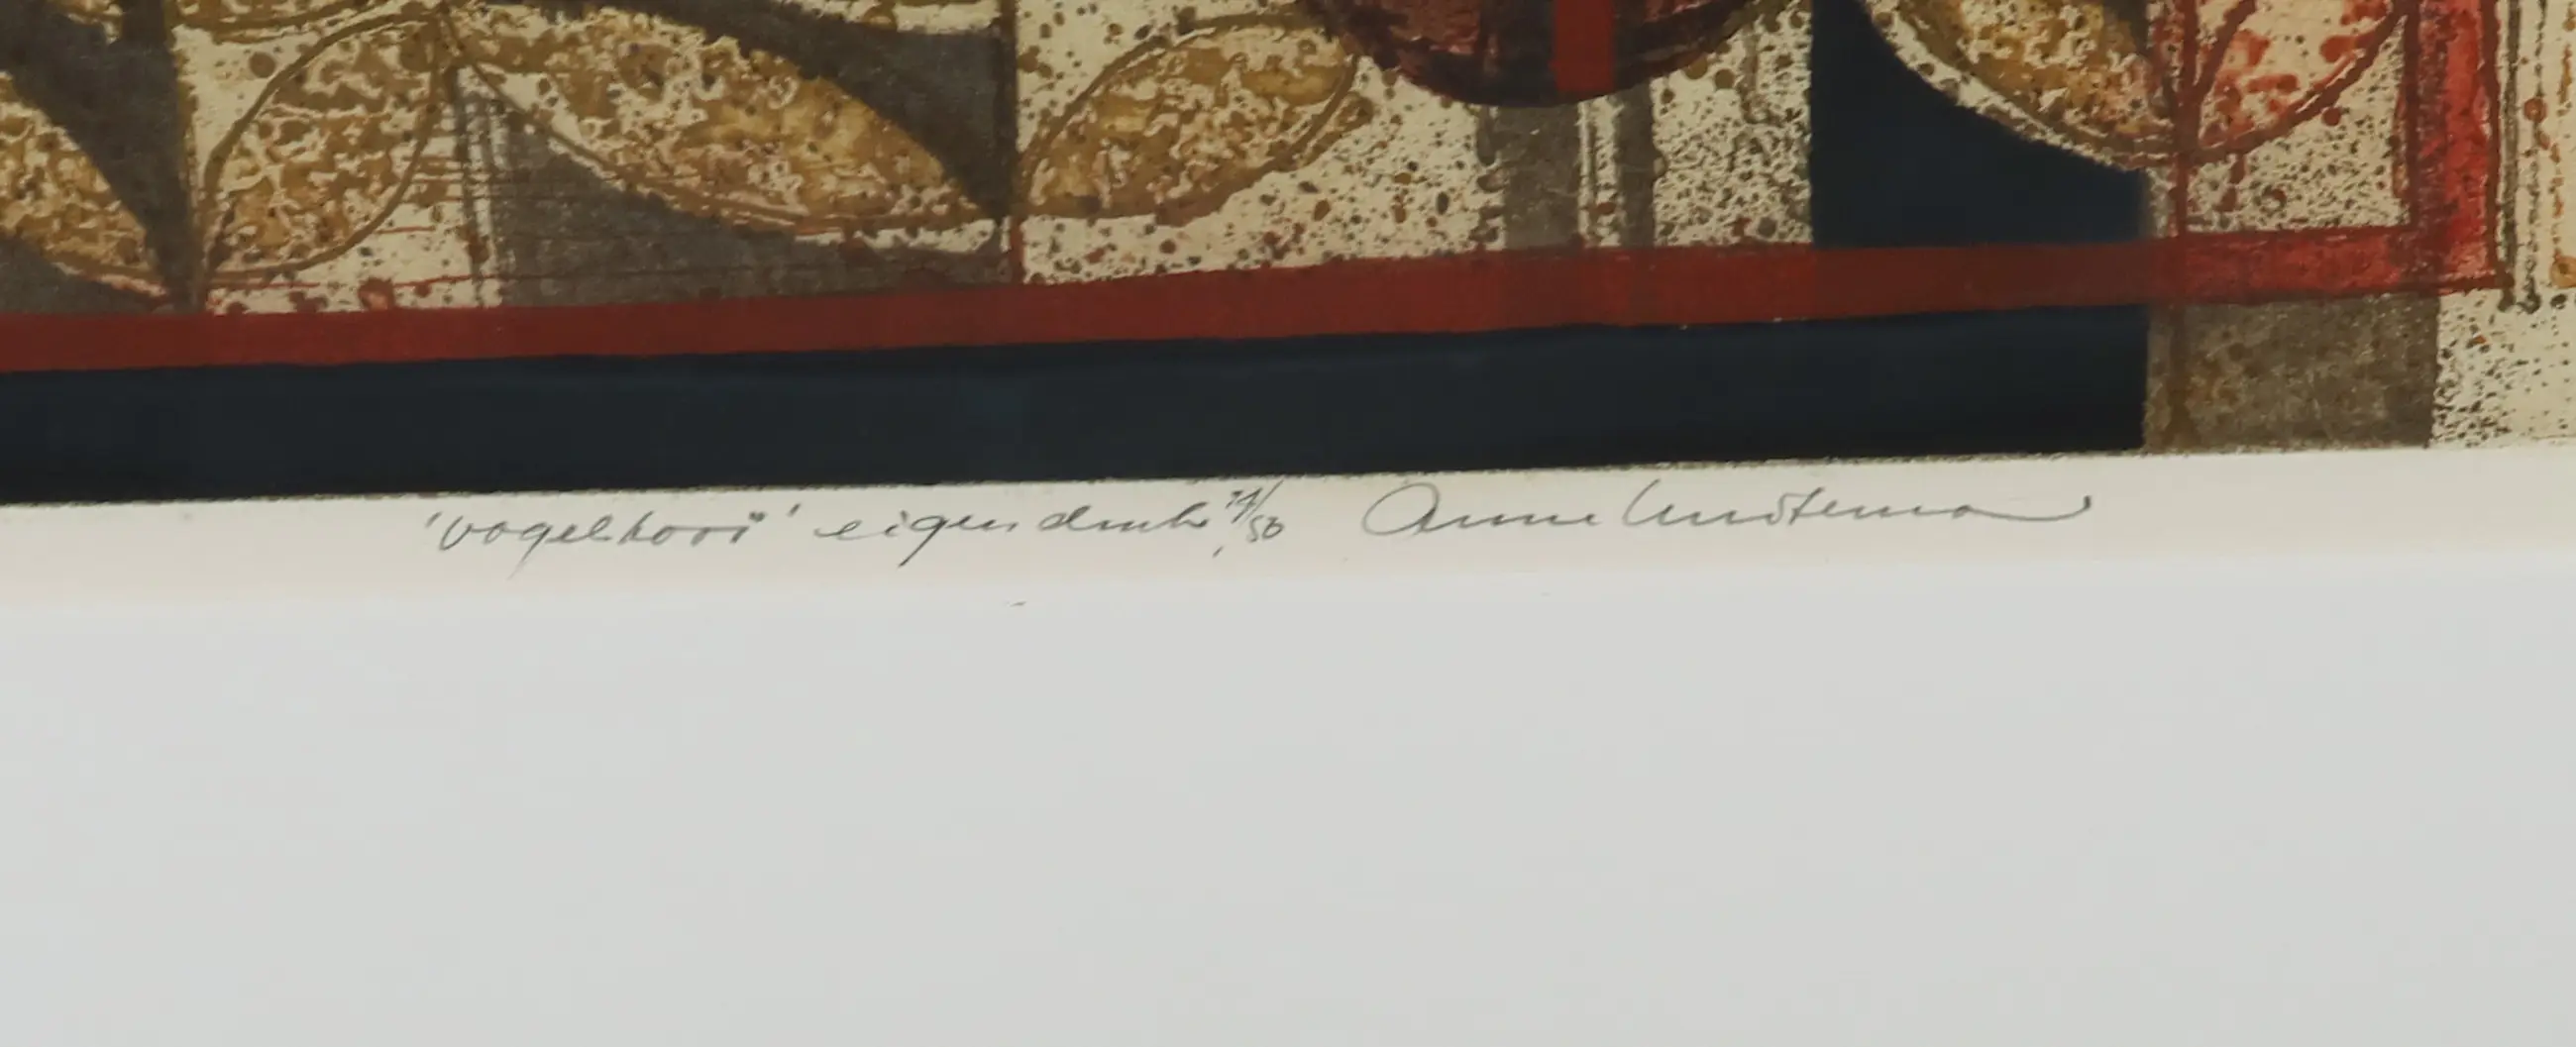 'vogelkooi' eigen druk 31/50 Anne Lindtema